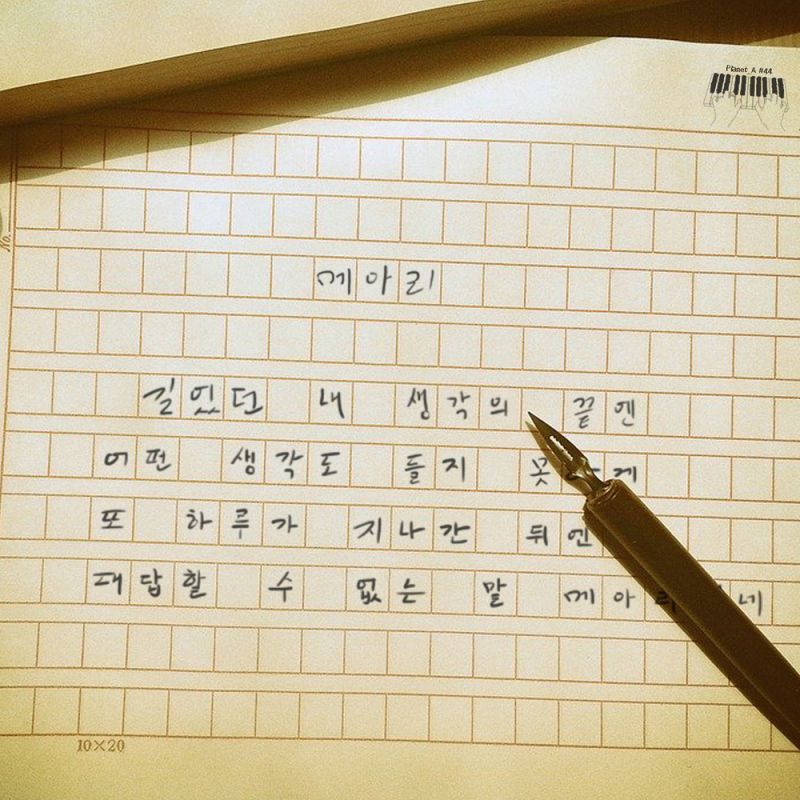 Planet_A #44
No.
메아리
길었던 내 생각의 끝엔
어떤 생각도 들지
또 하루가 지나간 뒤엔
대답할 수 없는 말
10×20